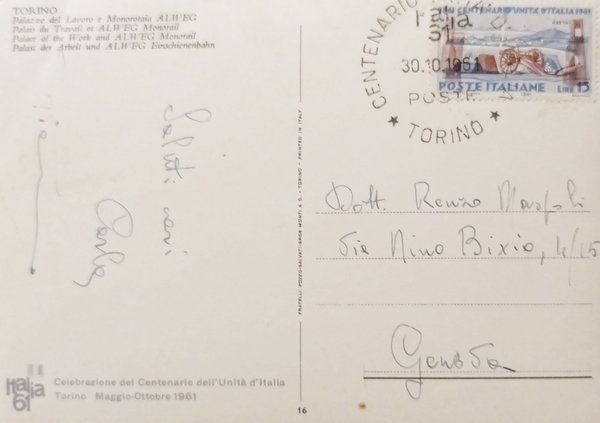 TORINO
Palazzo del Lavoro e Monorotaia ALWEG
Palais du Travail et ALWEG Monorail
Palace of the Work and ALWEG Monorail
Palast der Arbeit und ALWEG Einschienenbahn
Saluti cari
Carlo
CENTENARIO
Italia
61
30.10.1961
POSTE
* TORINO *
CENTENARIO UNITÀ D'ITALIA 1961
GAETA
POSTE ITALIANE LIRE 15
FRATELLI POZZO-SALVATI-GROS MONTI & C. - TORINO - PRINTED IN ITALY
Dott. Renzo
Via Nino Bixio, 4/15
Genova
Italia
61
Celebrazione del Centenario dell'Unità d'Italia
Torino Maggio-Ottobre 1961
16